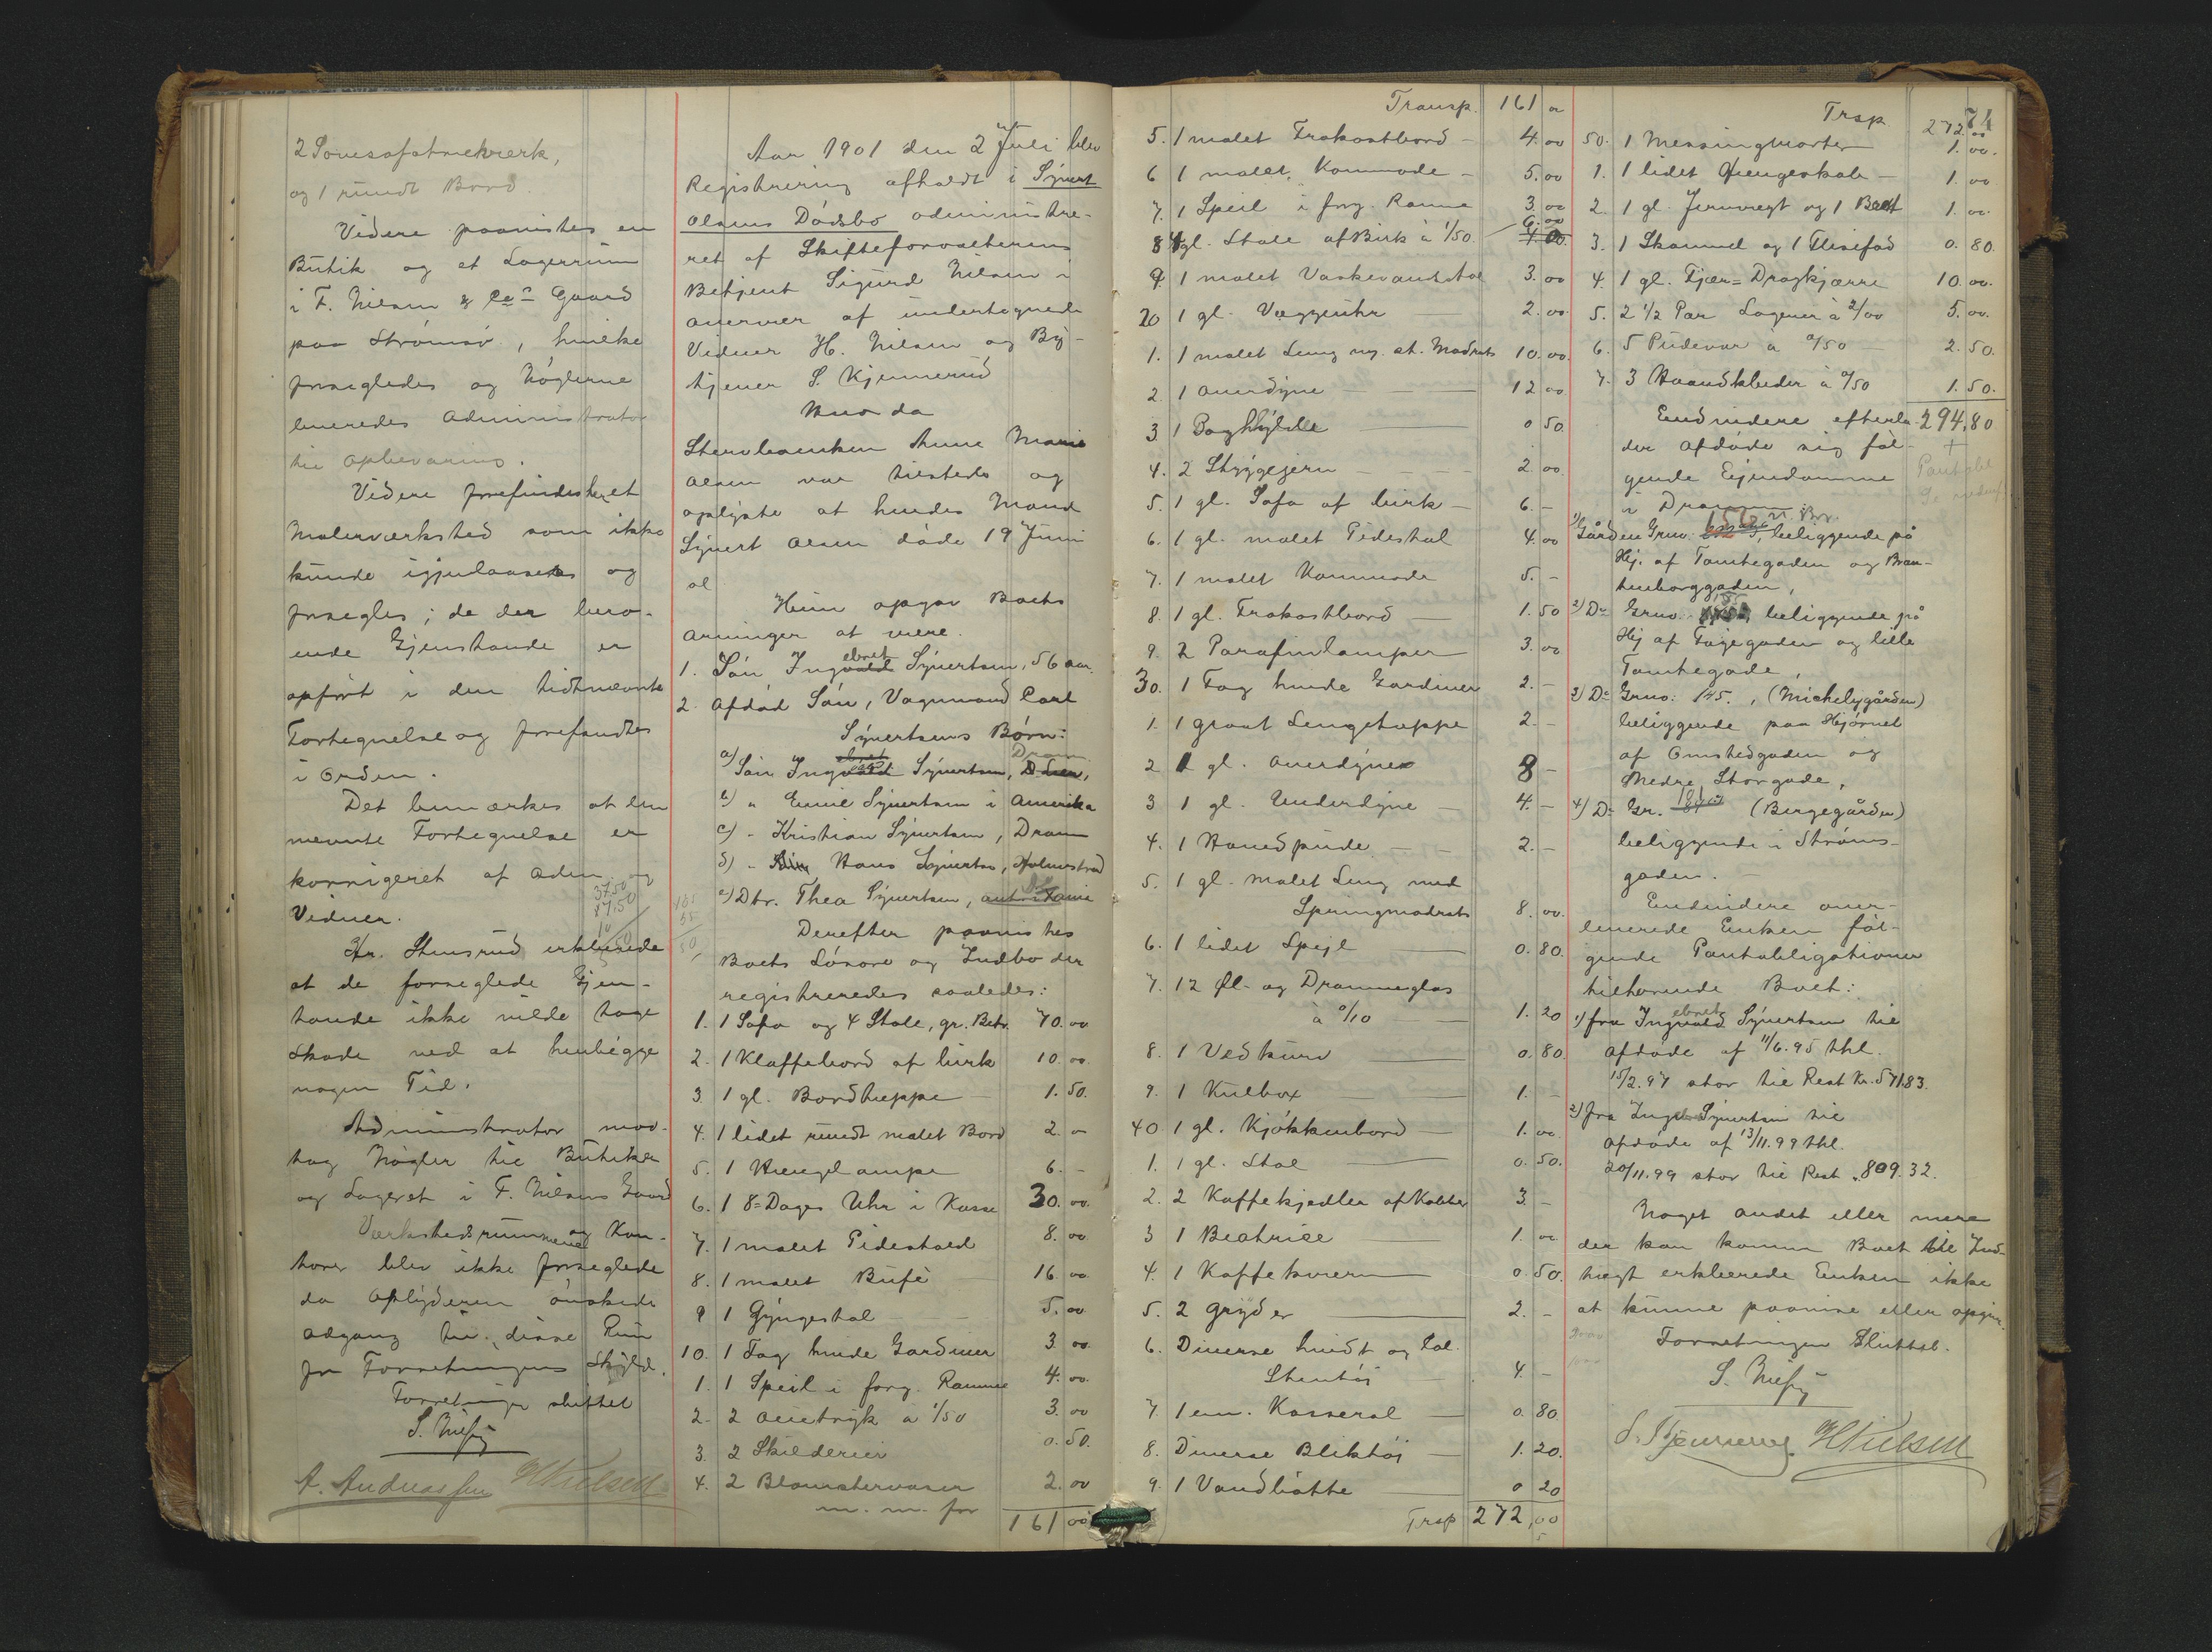 2
og 1 rundt Bord.
Videre paavistes en
Butik og et Lagerrum
i F. Nilsen & Co Gaard
paa Strømsø, hvilke
forsegledes og Nøglerne
leveredes Administrator
til Opbevaring.
Videre forefindes et
Malerværksted som ikke
kunde igjenlaases og
forsegles; de der bero-
ende Gjenstande er
opført i den tidtnævnte
Fortegnelse og forefandtes
i Orden.
Det bemærkes at den
nævnte Fortegnelse er
korrigeret af Adm. og
Vidner.
37.50
17.50
Hr. Stensrud erklærede
at de forseglede Gjen-
stande ikke vilde tage
Skade ved at henligge
nogen Tid.
Administrator mod-
tog Nøgler til Butiken
og Lageret i F. Nilsens Gaard
Værkstedsrummene og Kon-
toret blev ikke forseglede
da Opbyderen ønskede
Adgang til disse Rum
for Forretningens Skyld.
Forretningen sluttet
S. Nilsen
A. Andreassen HNielsen
Aar 1901 den 2 Juli blev
Registrering afholdt i Syvert
Olsens Dødsbo administre-
ret af Skifteforvalterens
Betjent Sigurd Nilsen i
Overvær af undertegnede
Vidner H. Nilsen og By-
tjener S. Kjennerud
Hvor da
Stervboenken Anne Marie
Olsen var tilstede og
oplyste at hendes Mand
Syvert Olsen døde 19 Juni
al
Hun opgav Boets
Arvinger at være.
1. Søn Ingebret Syvertsen, 56 Aar
2. Afdød Søn, Vognmand Carl
Syvertsens Børn:
a) Søn Ingvald Syvertsen, Dram
b) " Emil Syvertsen i Amerika
c) - Kristian Syvertsen, Dram
d) - Hans Syvertsen, Holmestrand
e) Dtr. Thea Syvertsen,
Derefter paavistes
Boets Løsøre og Indbo der
registreredes saaledes:
1. 1 Sofa og 4 Stole, gr. Betr. 70.00
2. 1 Klaffebord af birk 10.00
3. 1 gl. Bordteppe 1.50.
4. 1 lidet rundt malet Bord 2.00
5. 1 Hængelampe 6.-
6. 1 8=Dages Uhr i Kasse 30.00
7. 1 malet Pidestald 8.00
8. 1 malet Bufè 16.00
9 1 Gyngestol 5.00
10. 1 Fag hvide Gardiner 3.00
1. 1 Speil i forg. Ramme 4.00
2. 2 Olietryk a 1/50 3.00
3. 2 Skilderier 0.50.
4. 2 Blomstervaser 2.00
m. m. for
161 00
Transp. 161 00
5. 1 malet Frokostbord - 4.00
6 1 malet Kommode - 5.00
7. 1 Speil i forg. Ramme 3.00
8 4 gl. Stole af Birk à 1/50. 6.00
9 1 malet Vaskevandstol 3.00
20 1 gl. Væggeuhr 2.00
1. 1 malet Seng m. st. Madrats 10.00.
2. 1 Overdyne 12 00
3. 1 Boghylde 0 50
4. 2 Strygejern 2.00.
5. 1 gl. Sofa af birk 6.-
6. 1 gl. malet Pidestal 4.00
7. 1 malet Kommode 5.-
8. 1 gl. Frokostbord 1.50
9. 2 Parafinlamper 3.00
30. 1 Fag hvide Gardiner 2.-
1. 1 graat Sengeteppe 2.-
2 1 gl. Overdyne 8 -
3 1 gl. Underdyne - 4.-
4. 1 Hovedpude 2.-
5. 1 gl. malet Seng med
Springmadrats 8.00.
6. 1 lidet Spejl 0.80.
7. 12 Øl- og Dramneglas
à 0/10 1.20
8. 1 Vedkurv 0.80.
9. 1 Kulbox 1.-
40 1 gl. Kjøkkenbord 1.00
1. 1 gl. Stol 0.50.
2. 2 Kaffekjedler af Kobber 3.-
3 1 Beatrice 1.00
4. 1 Kaffekværn 0.50.
5. 2 Gryder 2.-
6. Diverse hvidt og kol.
Stentøi 4.-
7. 1 em. Kasserol 0.80.
8. Diverse Bliktøi 1.20.
9. 1 Vandbøtte 0 20
Trsp 272,00
74
Trsp. 272.00
50. 1 Messingmorter 1.00.
1. 1 lidet Hengeskab 1.00
2. 1 gl. Jernvægt og 1 Brett 1.00.
3. 1 Skammel og 1 Flisefad 0.80
4. 1 gl. Fjær=Dragkjærre 10.00.
5. 2 1/2 Par Lagener à 2/00 5.00.
6. 5 Pudevar à 0/50 2.50.
7. 3 Haandklæder à 0/50 1.50.
294,80
Endvidere efterlo
der Afdøde sig føl-
gende Ejendomme
i Drammen:
1) Gården Grno. beliggende på
Hj. af Tomtegaden og Bran-
tenborggaden,
2) Do Grno. beliggende på
Hj af Fogegaden og lille
Tomtegade,
3) Do Grno: 145., (Mickelsgården)
beliggende paa Hjørnet
af Omstedgaden og
Nedre Storgade,
4) Do Gr. 181 (Bergegården)
beliggende i Strøms-
gaden.
Endvidere over-
leverede Enken føl-
gende Pantobligationer
tilhørende Boet:
1) fra Ingebret Syvertsen til
Afdøde af 11/6.95 thl.
15/2.97 stor til Rest Kr. 571.83.
2) fra Ingebr. Syvertsen til
Afdøde af 13/11.99 thl.
20/11.99 stor til Rest " 809.32.
Noget andet eller mere
der kan komme Boet til Ind-
tægt erklærede Enken ikke
at kunne paavise eller opgive.
Forretningen Sluttet.
S. Nilsen
S. Kjennerud. HNielsen